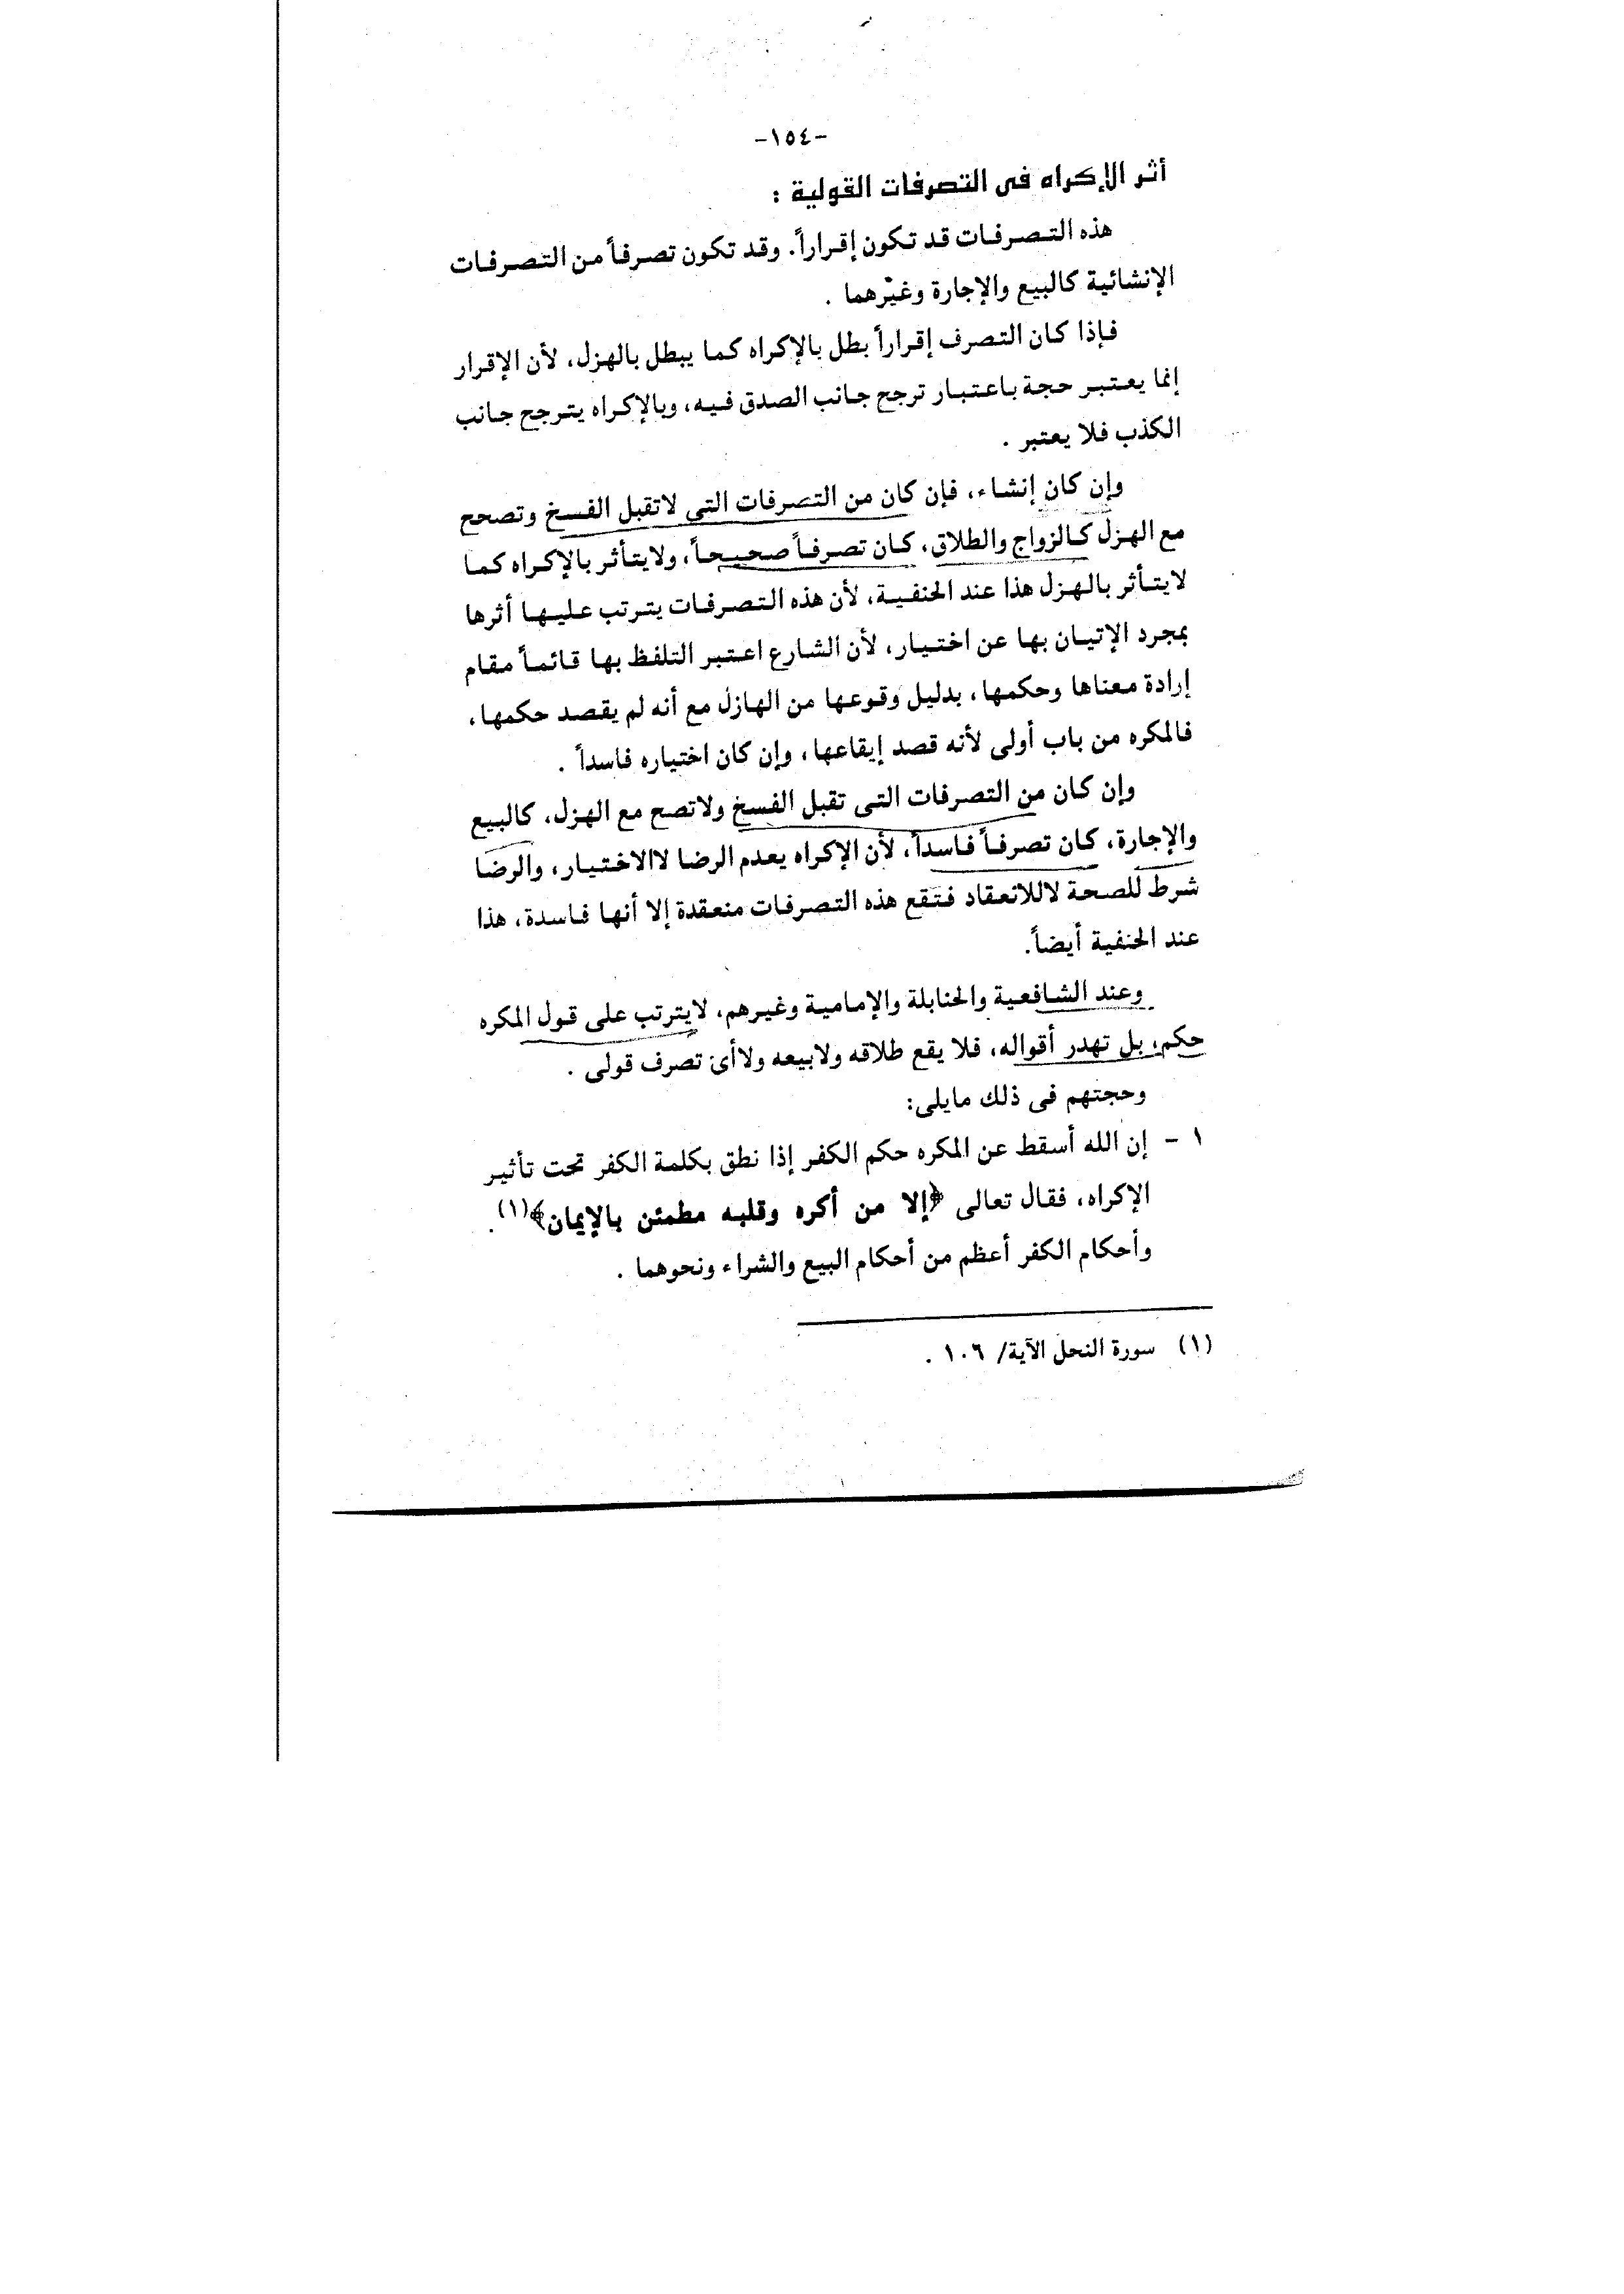 -١٥٤-
أثر الإكراه فى التصرفات القولية :
هذه التصرفات قد تكون إقراراً. وقد تكون تصرفاً من التصرفات
الإنشائية كالبيع والإجارة وغيرهما .
فإذا كان التصرف إقراراً بطل بالإكراه كما يبطل بالهزل، لأن الإقرار
إنما يعتبر حجة باعتبار ترجح جانب الصدق فيه، وبالإكراه يترجح جانب
الكذب فلا يعتبر .
وإن كان إنشاء، فإن كان من التصرفات التى لاتقبل الفسخ وتصحح
مع الهزل كالزواج والطلاق، كان تصرفاً صحيحاً، ولايتأثر بالإكراه كما
لايتأثر بالهزل هذا عند الحنفية، لأن هذه التصرفات يترتب عليها أثرها
بمجرد الإتيان بها عن اختيار، لأن الشارع اعتبر التلفظ بها قائماً مقام
إرادة معناها وحكمها، بدليل وقوعها من الهازل مع أنه لم يقصد حكمها،
فالمكره من باب أولى لأنه قصد إيقاعها، وإن كان اختياره فاسداً .
وإن كان من التصرفات التى تقبل الفسخ ولاتصح مع الهزل، كالبيع
والإجارة، كان تصرفاً فاسداً، لأن الإكراه يعدم الرضا لاالاختيار، والرضا
شرط للصحة لاللانعقاد فتقع هذه التصرفات منعقدة إلا أنها فاسدة، هذا
عند الحنفية أيضاً.
وعند الشافعية والحنابلة والإمامية وغيرهم، لايترتب على قول المكره
حكم، بل تهدر أقواله، فلا يقع طلاقه ولابيعه ولاأى تصرف قولى .
وحجتهم فى ذلك مايلى:
١ - إن الله أسقط عن المكره حكم الكفر إذا نطق بكلمة الكفر تحت تأثير
الإكراه، فقال تعالى ﴿إلا من أكره وقلبه مطمئن بالإيمان﴾(١).
وأحكام الكفر أعظم من أحكام البيع والشراء ونحوهما .
(١) سورة النحل الآية/ ١٠٦ .